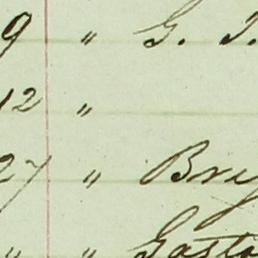 9 " G. T.
12 "
27 " Bry
" " Gasto